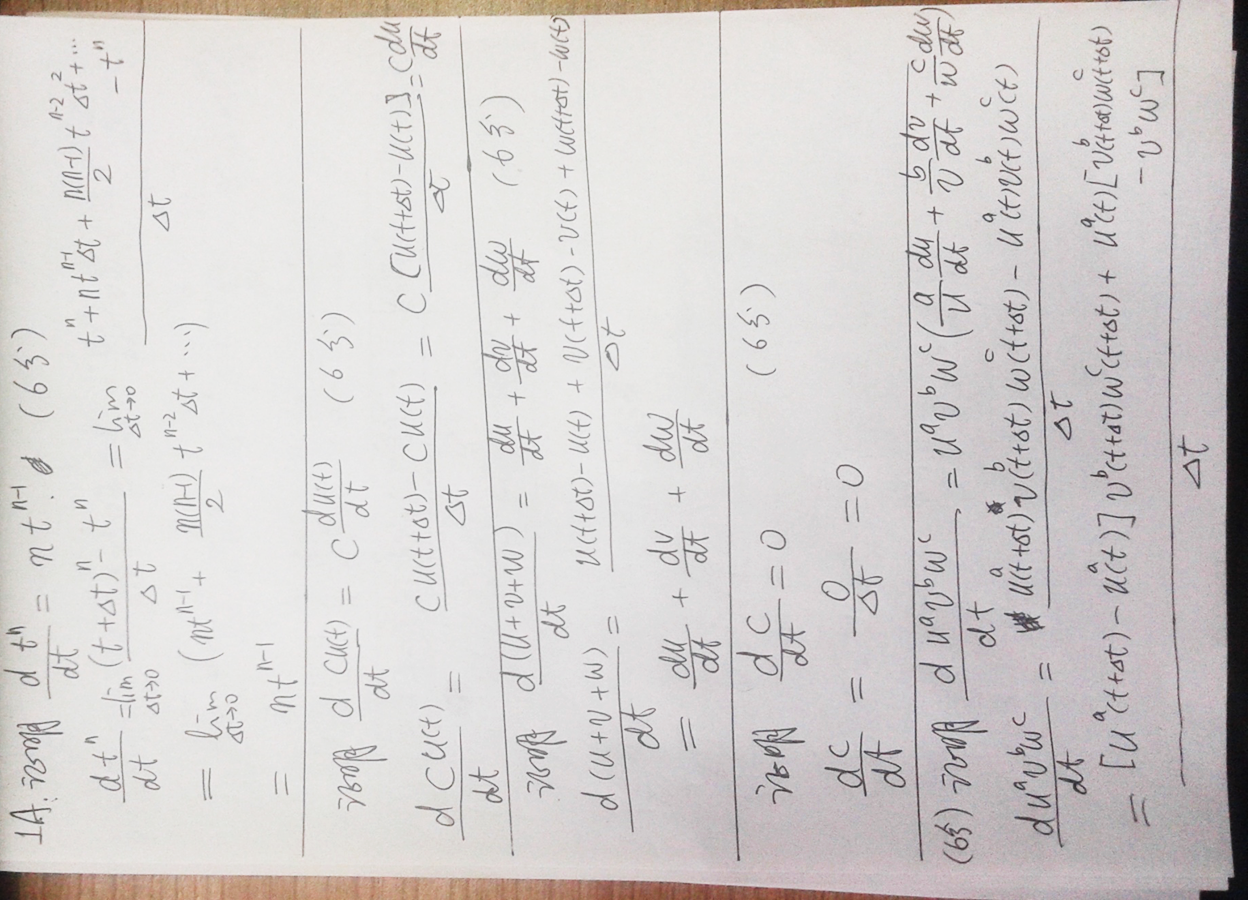 1A. 证明 d tⁿ/dt = n tⁿ⁻¹. (6分)
d tⁿ/dt = lim_{Δt→0} ((t+Δt)ⁿ - tⁿ)/Δt = lim_{Δt→0} (tⁿ + ntⁿ⁻¹Δt + n(n-1)/2 tⁿ⁻²Δt² + ... - tⁿ)/Δt
= lim_{Δt→0} (ntⁿ⁻¹ + n(n-1)/2 tⁿ⁻²Δt + ...)
= ntⁿ⁻¹
证明 d cu(t)/dt = c du(t)/dt (6分)
d cu(t)/dt = (cu(t+Δt) - cu(t))/Δt = c [u(t+Δt) - u(t)]/Δt = c du/dt
证明 d(u+v+w)/dt = du/dt + dv/dt + dw/dt (6分)
d(u+v+w)/dt = (u(t+Δt) - u(t) + v(t+Δt) - v(t) + w(t+Δt) - w(t))/Δt
= du/dt + dv/dt + dw/dt
证明 d c/dt = 0 (6分)
dc/dt = 0/Δt = 0
(6分) 证明 d uᵃvᵇwᶜ/dt = uᵃvᵇwᶜ(a/u du/dt + b/v dv/dt + c/w dw/dt)
d uᵃvᵇwᶜ/dt = (uᵃ(t+Δt)vᵇ(t+Δt)wᶜ(t+Δt) - uᵃ(t)vᵇ(t)wᶜ(t))/Δt
= ([uᵃ(t+Δt) - uᵃ(t)]vᵇ(t+Δt)wᶜ(t+Δt) + uᵃ(t)[vᵇ(t+Δt)wᶜ(t+Δt) - vᵇwᶜ])/Δt